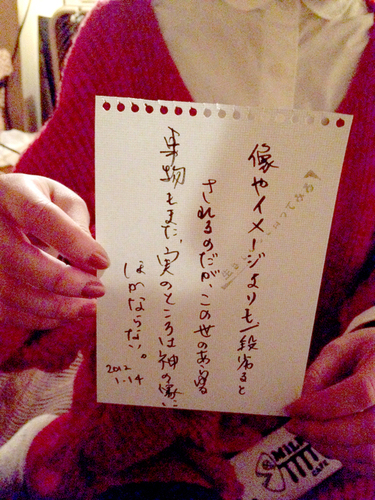 像やイメージよりも一段劣ると
されるのだが、この世のあらゆる
事物もまた、実のところは神の像に
ほかならない。
2012
1.14
MILK
CAFE